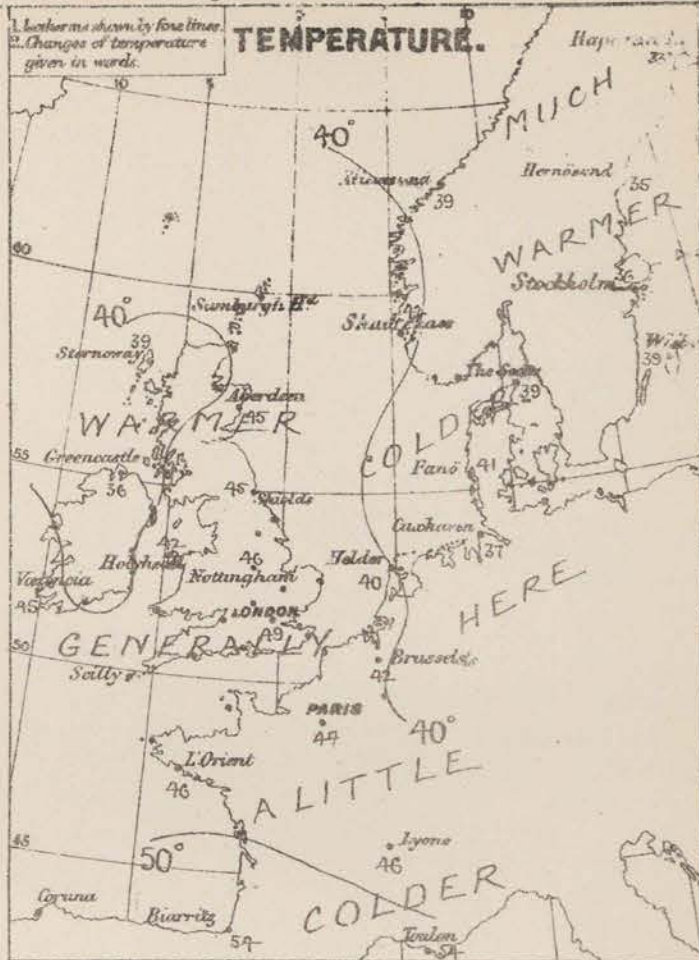 1. Isotherms shown by fine lines.
2. Changes of temperature
given in words.
TEMPERATURE.
10
5
MUCH
40°
Hernösand
39
35
WARMER
60
Stockholm
36
Sumburgh Hd
40°
39
Stornoway
39
The Scaw
39
Aberdeen
45
WARMER
COLD
55
Greencastle
36
Fanö
41
45
Shields
Cuxhaven
37
42
Holyhead
46
Nottingham
Helder
40
HERE
Valencia
45
LONDON
49
GENERALLY
50
Scilly
Brussels
42
PARIS
47
40°
L'Orient
46
A LITTLE
45
50°
Lyons
46
COLDER
Coruna
Biarritz
54
Toulon
54